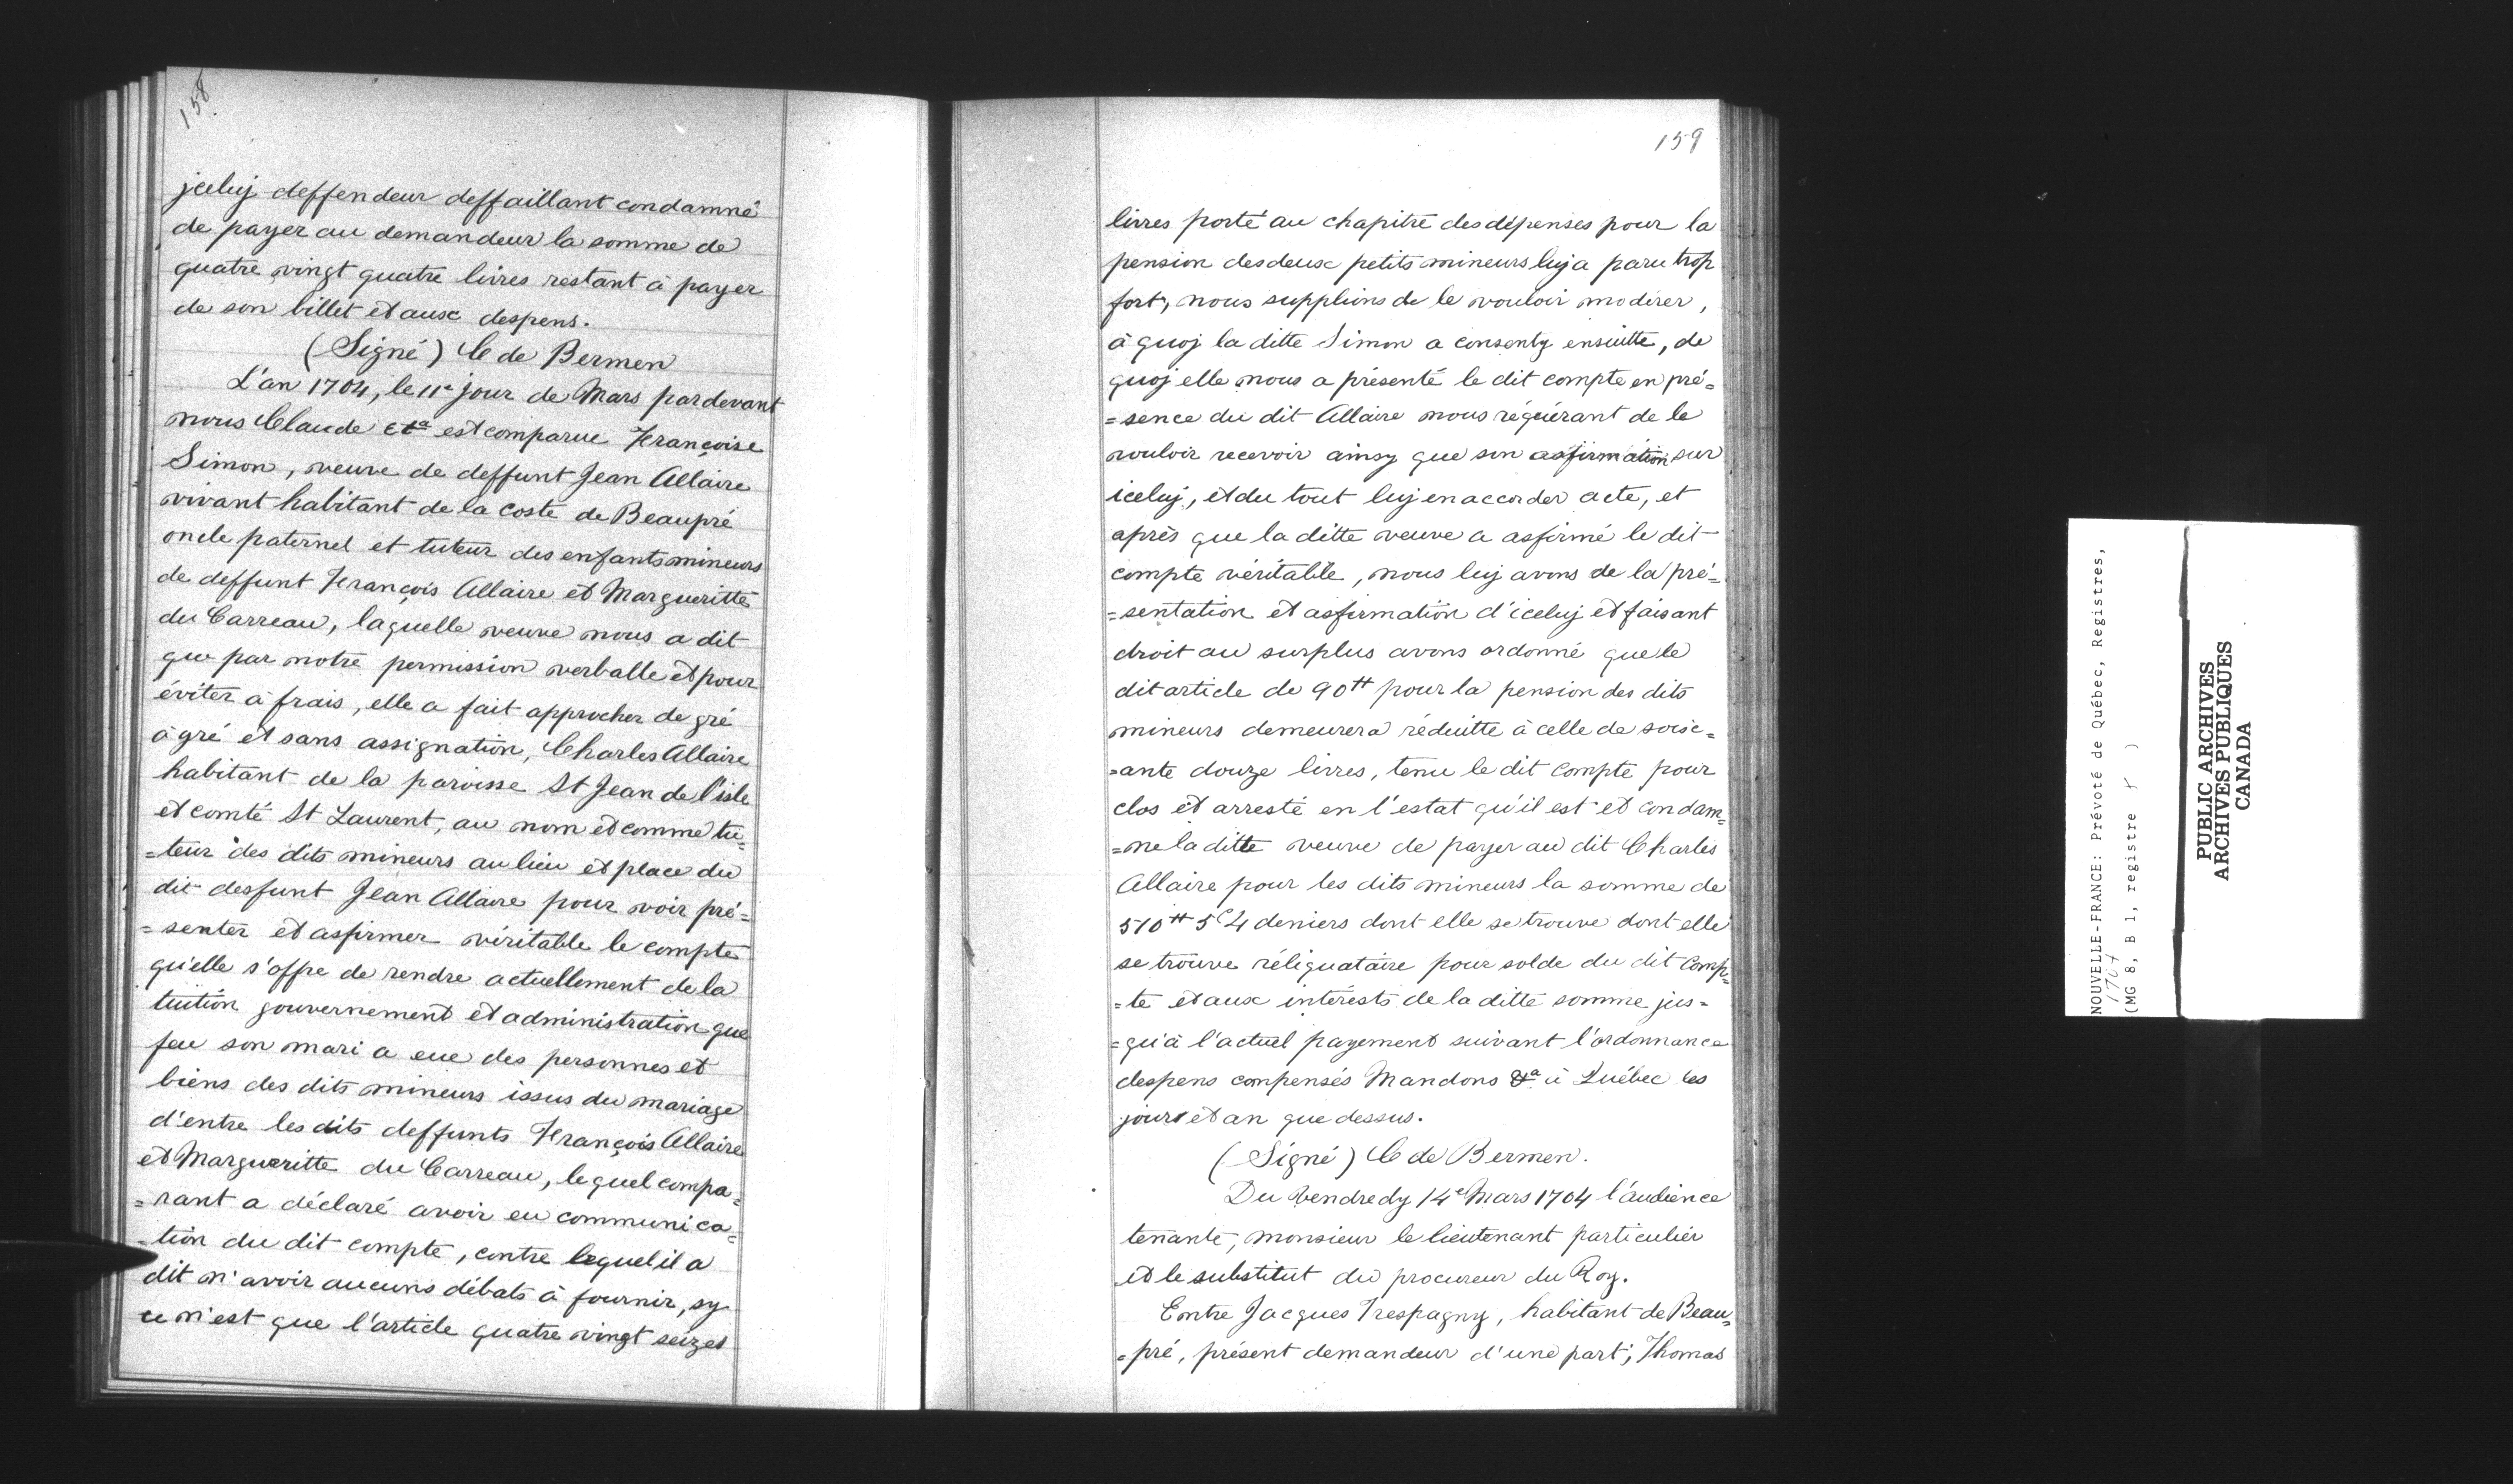 158
jceluj deffendeur deffaillant condamné
de payer au demandeur la somme de
quatre vingt quatre livres restant à payer
de son billet et aux despens.
(Signé) C de Bermen
L'an 1704, le 11e jour de Mars pardevant
nous Claude &ta est comparue Françoise
Simon, veuve de deffunt Jean Allaire
vivant habitant de la coste de Beaupré
oncle paternel et tuteur des enfants mineurs
de deffunt François Allaire et Margueritte
du Carreau, laquelle veuve nous a dit
que par notre permission verballe et pour
éviter à frais, elle a fait approcher de gré
à gré et sans assignation, Charles Allaire
habitant de la paroisse St Jean de l'isle
et comté St Laurent, au nom et comme tu=
=teur des dits mineurs au lieu et place du
dit desfunt Jean Allaire pour voir pré=
=senter et asfirmer véritable le compte
qu'elle s'offre de rendre actuellement de la
tuition gouvernement et administration que
feu son mari a eue des personnes et
biens des dits mineurs issus du mariage
d'entre les dits deffunts François Allaire
et Margueritte du Carreau, lequel compa=
=rant a déclaré avoir eu communica=
=tion du dit compte, contre lequel il a
dit n'avoir aucuns débats à fournir, sy
ce n'est que l'article quatre vingt seizes
159
livres porté au chapitre des dépenses pour la
pension des deux petits mineurs luj a paru trop
fort, nous supplions de le vouloir modérer,
à quoj la ditte Simon a consenty ensuitte, de
quoj elle nous a présenté le dit compte en pré=
=sence du dit Allaire nous réquérant de le
vouloir recevoir ainsy que son asfirmation sur
iceluj, et du tout luj en accorder acte, et
après que la ditte veuve a asfirmé le dit
compte véritable, nous luj avons de la pré=
=sentation et asfirmation d'iceluj et faisant
droit au surplus avons ordonné que le
dit article de 90tt pour la pension des dits
mineurs demeurera réduitte à celle de soix=
=ante douze livres, tenu le dit compte pour
clos et arresté en l'estat qu'il est et condam=
=ne la ditte veuve de payer au dit Charles
Allaire pour les dits mineurs la somme de
510tt 5s 4 deniers dont elle se trouve dont elle
se trouve réliquataire pour solde du dit comp=
=te et aux intérests de la ditte somme jus=
=qu'à l'actuel payement suivant l'ordonnance
despens compensés Mandons &a à Québec les
jours et an que dessus.
(Signé) C de Bermen.
Du Vendredy 14e Mars 1704 l'audience
tenante, monsieur le lieutenant particulier
et le substitut du procureur du Roy.
Entre Jacques Trespagny, habitant de Beau=
=pré, présent demandeur d'une part; Thomas
NOUVELLE-FRANCE: Prévoté de Québec, Registres,
1704
(MG 8, B 1, registre 5 )
PUBLIC ARCHIVES
ARCHIVES PUBLIQUES
CANADA